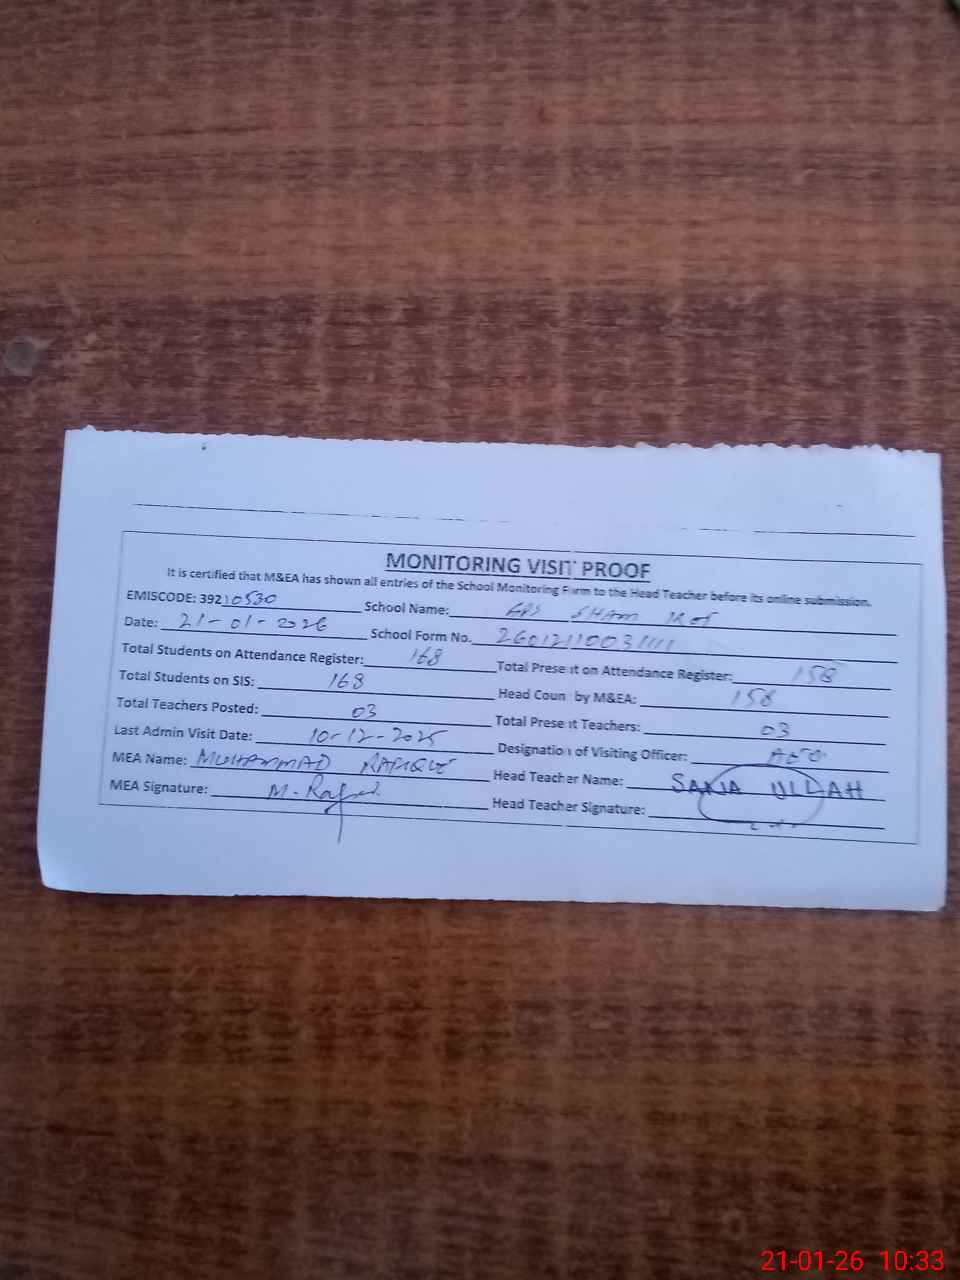 MONITORING VISIT PROOF
It is certified that M&EA has shown all entries of the School Monitoring Form to the Head Teacher before its online submission.
EMISCODE: 39210530 School Name: GPS SHAM KOT
Date: 21-01-2026 School Form No. 26012110031111
Total Students on Attendance Register: 168 Total Present on Attendance Register: 158
Total Students on SIS: 168 Head Count by M&EA: 158
Total Teachers Posted: 03 Total Present Teachers: 03
Last Admin Visit Date: 10-12-2025 Designation of Visiting Officer: AEO
MEA Name: MUHAMMAD RAFIQUE Head Teacher Name: SANA ULLAH
MEA Signature: M. Rafique Head Teacher Signature:
21-01-26 10:33